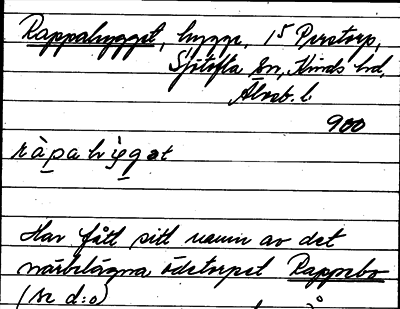 Rappahygget, hygge, 15 Perstorp,
Sjötofta sn, Kinds hd,
Älvsb. l.
900
ràpahỳgət
Har fått sitt namn av det
närbelägna ödetorpet Rappebo
(se d:o)